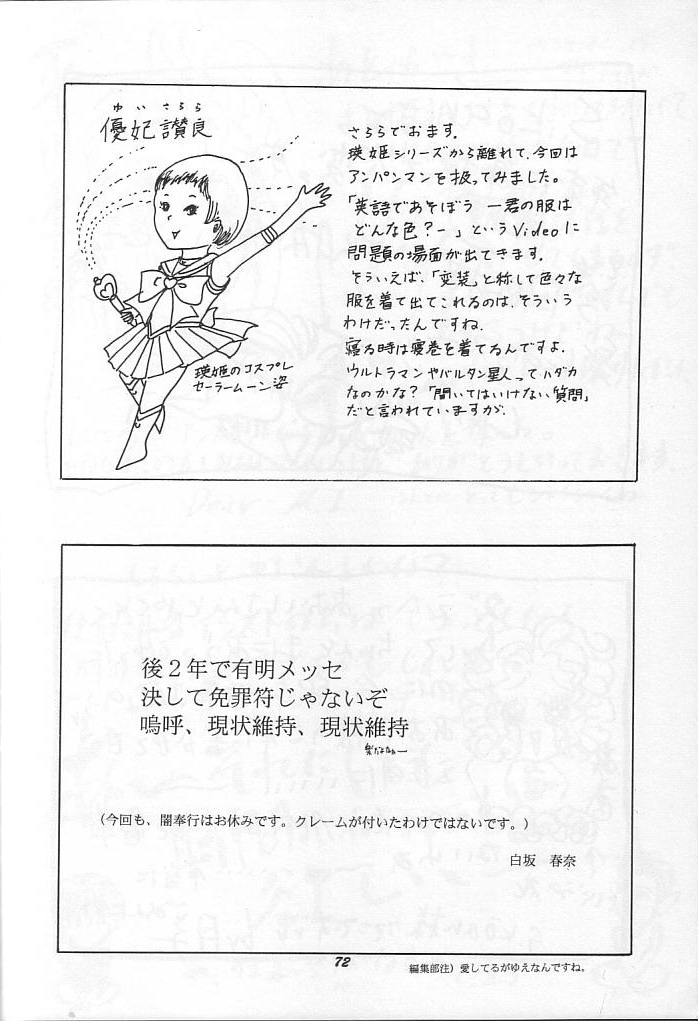 ゆい さらら
優妃 讃良
さららでおます。
瑛姫シリーズから離れて、今回は
アンパンマンを扱ってみました。
「英語であそぼう ー君の服は
どんな色?ー」というVideoに
問題の場面が出てきます。
そういえば、「変装」と称して色々な
服を着て出てこれるのは、そういう
わけだったんですね。
寝る時は寝巻を着てるんですよ。
ウルトラマンやバルタン星人ってハダカ
なのかな?「聞いてはいけない質問」
だと言われていますが、
瑛姫のコスプレ
セーラームーン姿
後2年で有明メッセ
決して免罪符じゃないぞ
嗚呼、現状維持、現状維持
(今回も、闇奉行はお休みです。クレームが付いたわけではないです。)
白坂 春奈
72
編集部注)愛してるがゆえなんですね。